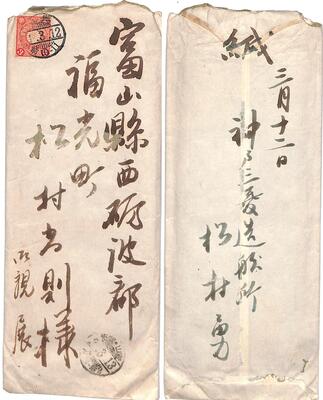 富山縣西砺波郡
福光町
松村吉則様
親展
緘
三月十二日
神戸三菱造船所
松村勇